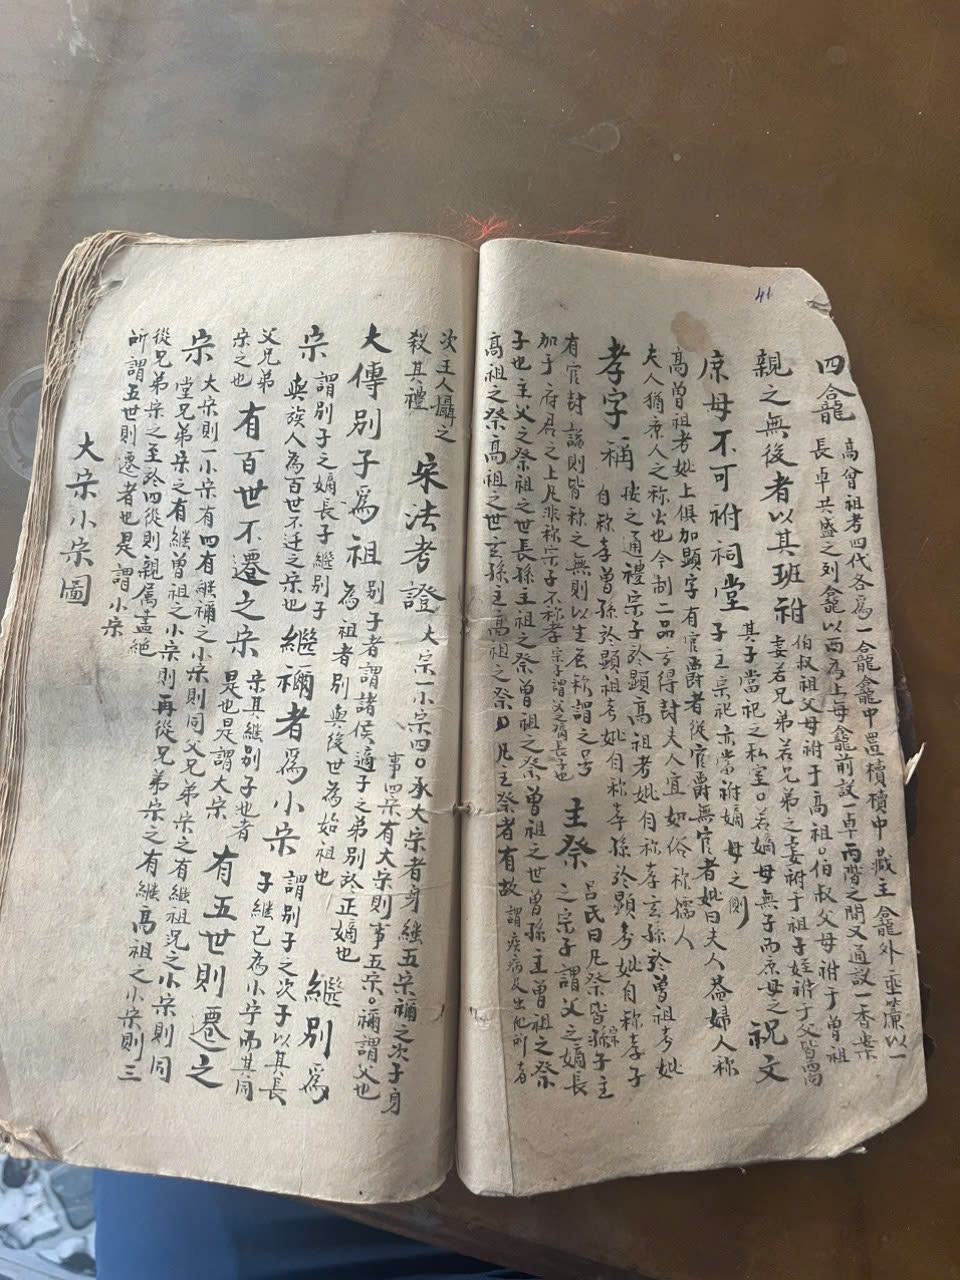 41
四龕
高曾祖考四代各為一龕龕中置櫝櫝中藏主龕外垂簾以一
長卓共盛之列龕以西為上每龕前設一卓兩階之間又通設一香案
親之無後者以其班祔
伯叔祖父母祔于高祖。伯叔父母祔于曾祖
妻若兄弟若兄弟之妻祔于祖子姪祔于父皆
庶母不可祔祠堂
其子當祀之私室。若嫡母無子而庶母之
子主宗祀亦當祔嫡母之側
祝文
高曾祖考妣上俱加顯字有官爵者從官爵無官者妣曰夫人葢婦人称
夫人猶庶人之称公也今制二品方得封夫人宜如俗称孺人
孝字稱
按之通禮宗子於顯高祖考妣自称孝玄孫於曾祖考妣
自称孝曾孫於顯祖考妣自称孝孫於顯考妣自称孝子
有官封諡則皆称之無則以生及称謂之号
加于府君之上凡非称宗子不称孝宗子謂父之嫡長子也
主祭
吕氏曰凡祭皆宗子主
之宗子謂父之嫡長
子也主父之祭祖之世長孫主祖之祭曾祖之世曾孫主曾祖之祭
高祖之祭高祖之世玄孫主高祖之祭凡主祭者有故
謂疾病及出他所者
次主人攝之
殺其禮
宗法考證
大宗一小宗四。承大宗者身継五宗禰之次子身
事四宗有大宗則事五宗。禰謂父也
大傳別子爲祖
別子者謂諸侯適子之弟別於正嫡也
為祖者別與後世為始祖也
継別爲
宗
謂別子之嫡長子継別子
與族人為百世不迁之宗也
繼禰者爲小宗
謂別子之次子以其長
子継已為小宗而其同
父兄弟
宗之也
有百世不遷之宗
宗其継別子也者
是也是謂大宗
有五世則遷之
宗
大宗則一小宗有四有継禰之小宗則同父兄弟宗之有継祖之小宗則同
堂兄弟宗之有継曾祖之小宗則再從兄弟宗之有継高祖之小宗則三
從兄弟宗之至於四從則親属盡絶
所謂五世則遷者也是謂小宗
大宗小宗圖